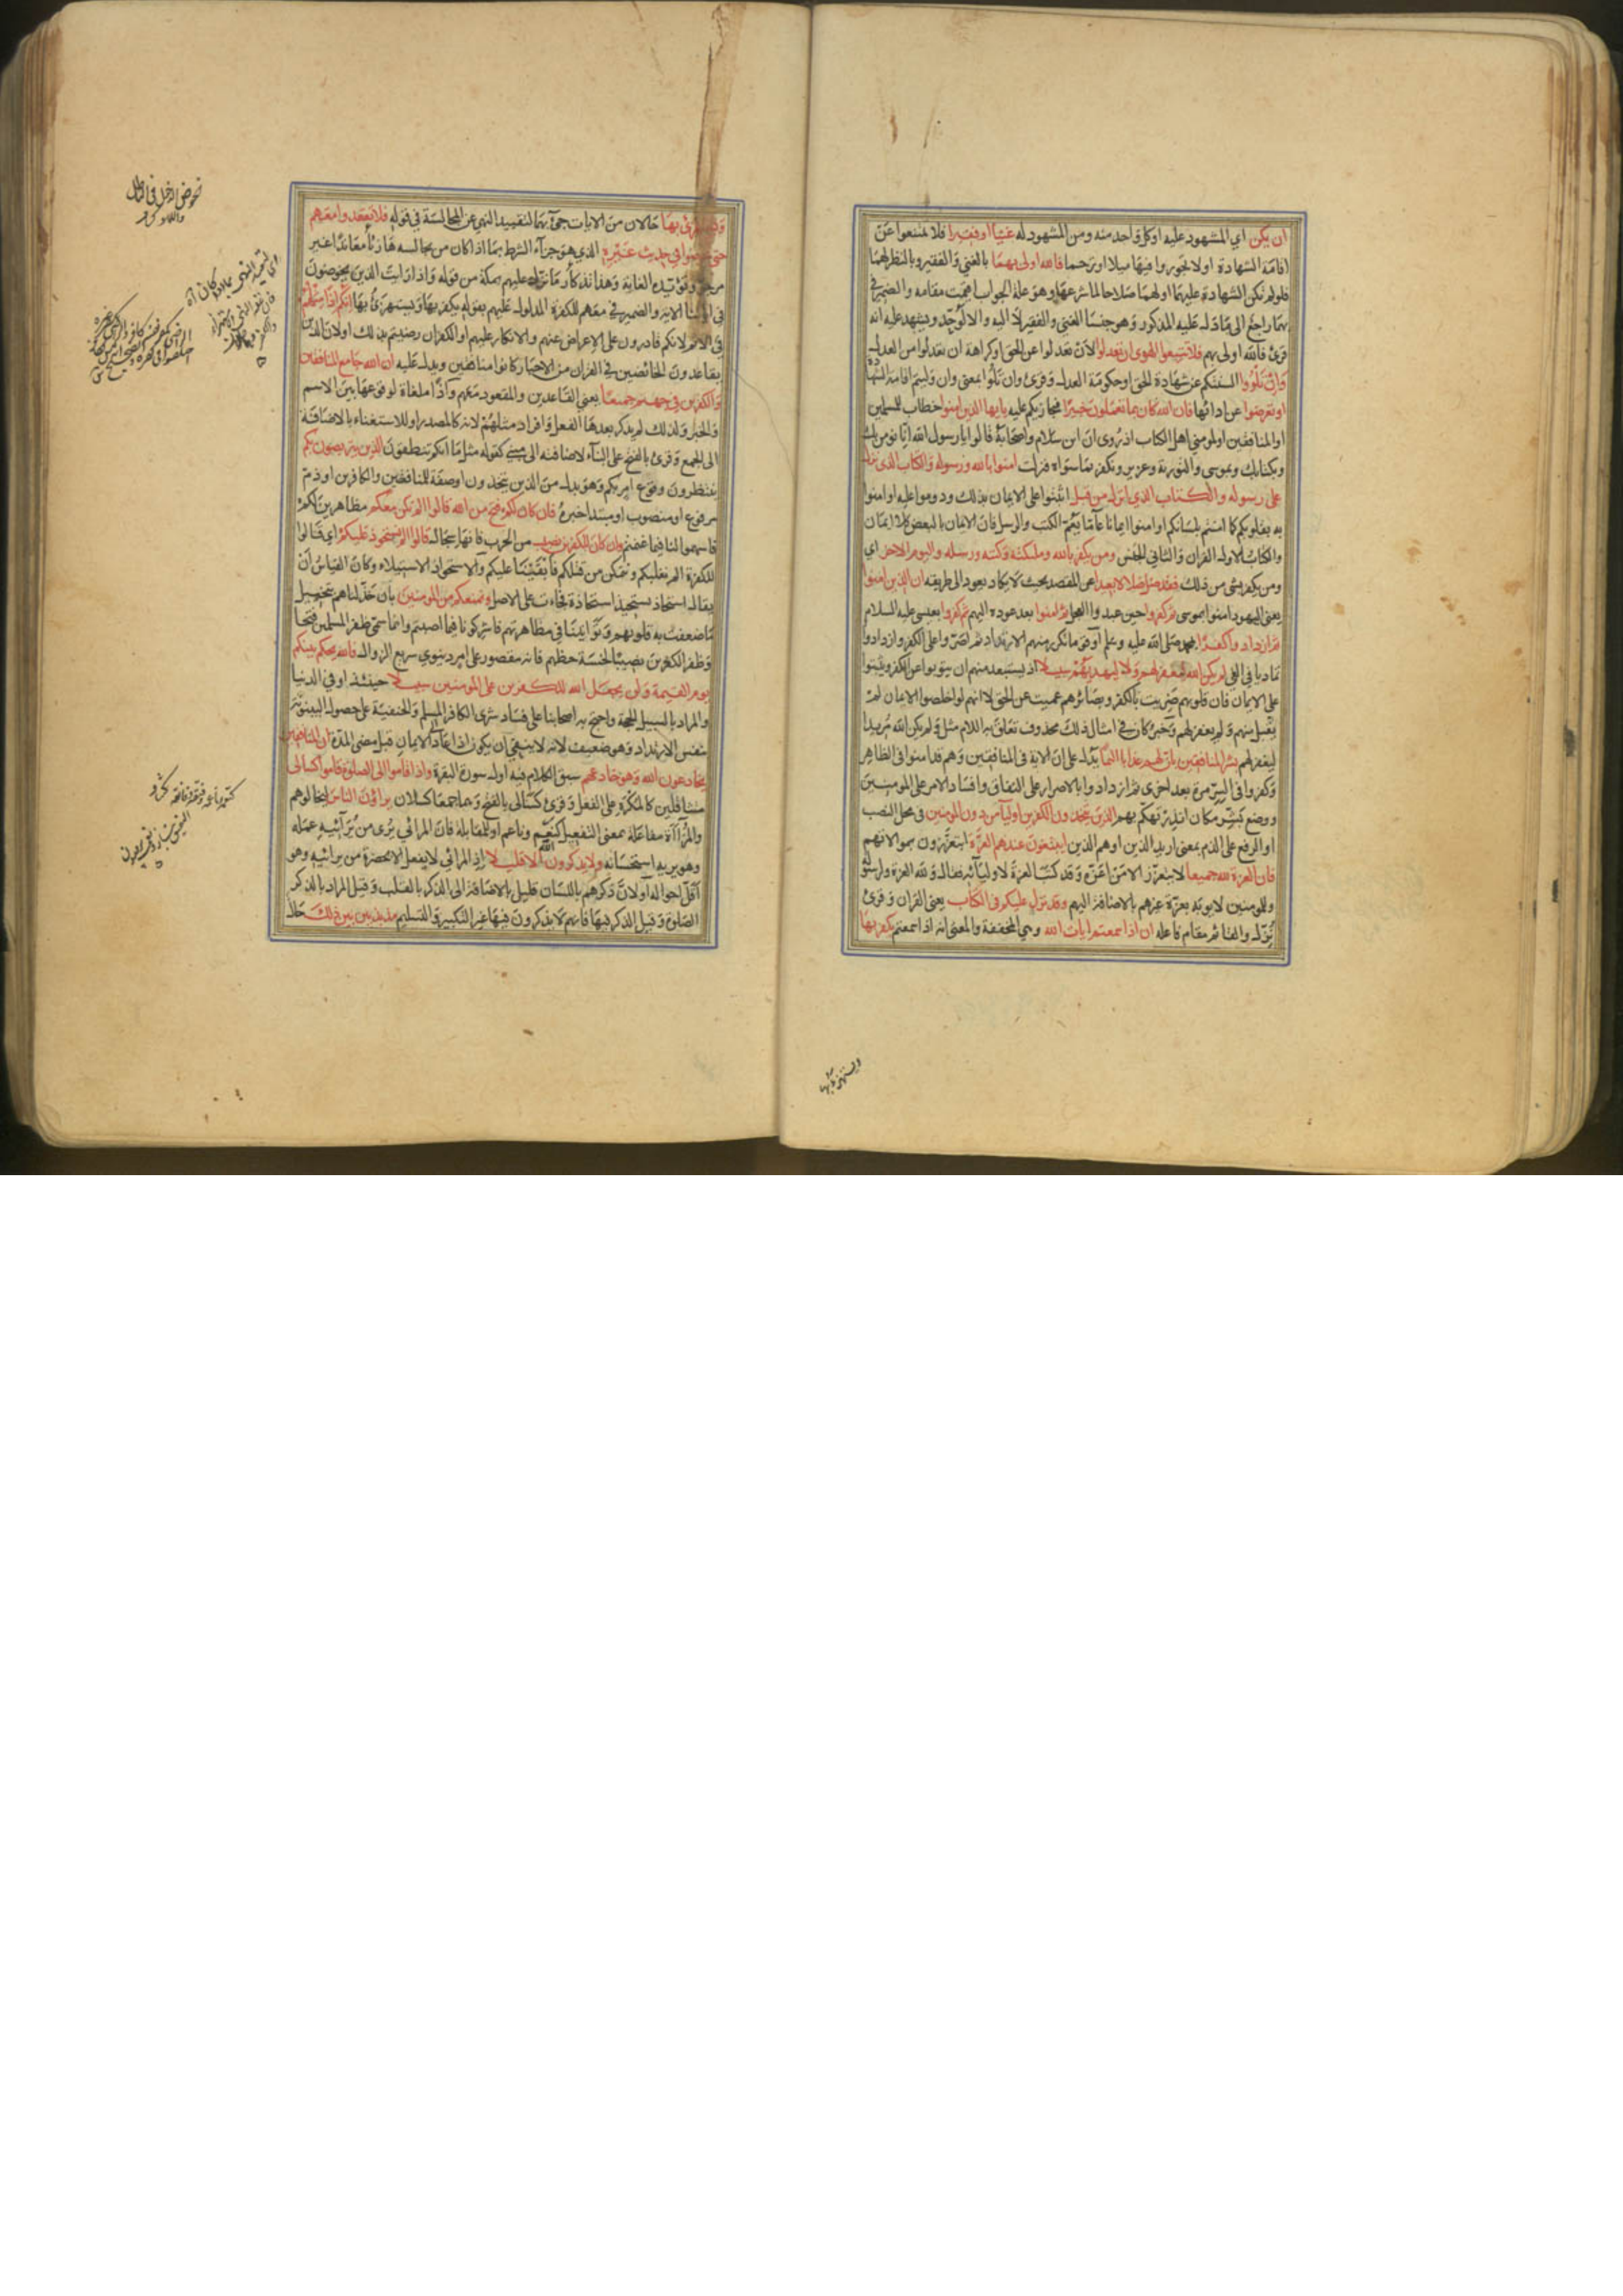 ان يكن اي المشهود عليه او كل واحد منه ومن المشهود له غنيا او فقيرا فلا تمتنعوا عن
اقامة الشهادة او لا تجوروا فيها ميلا او ترحما فالله اولى بهما بالغني والفقير وبالنظر لهما
فلو لم تكن الشهادة عليهما او لهما صلاحا لما شرعها وهو علة الجواب اقيمت مقامه والضمير في
بهما راجع الى ما دل عليه المذكور وهو جنسا الغني والفقير لا اليه والا لوحد ويشهد عليه انه
قرئ فالله اولى بهم فلا تتبعوا الهوى ان تعدلوا لان تعدلوا عن الحق او كراهة ان تعدلوا من العدل
وان تلووا السنتكم عن شهادة الحق او حكومة العدل وقرئ وان تلوا بمعنى وان وليتم اقامة الشهادة
او تعرضوا عن ادائها فان الله كان بما تعملون خبيرا فيجازيكم عليه يايها الذين امنوا خطاب للمسلمين
او المنافقين او لمومني اهل الكتاب اذ روى ان ابن سلام واصحابه قالوا يا رسول الله انا نومن بك
وبكتابك وبموسى والتورية وعزير ونكفر بما سواه فنزلت امنوا بالله ورسوله والكتاب الذي نزل
على رسوله والكتاب الذي انزل من قبل اثبتوا على الايمان بذلك ودوموا عليه او امنوا
به بقلوبكم كما امنتم بلسانكم او امنوا ايمانا عاما يعم الكتب والرسل فان الايمان بالبعض كلا ايمان
والكتاب الاول القران والثاني الجنس ومن يكفر بالله وملئكته وكتبه ورسله واليوم الاخر اي
ومن يكفر بشئ من ذلك فقد ضل ضلالا بعيدا عن المقصد بحيث لا يكاد يعود الى طريقه ان الذين امنوا
يعني اليهود امنوا بموسى ثم كفروا حين عبدوا العجل ثم امنوا بعد عوده اليهم ثم كفروا بعيسى عليه السلام
ثم ازدادوا كفرا بمحمد صلى الله عليه وسلم او قوما تكرر منهم الارتداد ثم اصروا على الكفر وازدادوا
تماديا في الغي لم يكن الله ليغفر لهم ولا ليهديهم سبيلا اذ يستبعد منهم ان يتوبوا عن الكفر ويثبتوا
على الايمان فان قلوبهم ضربت بالكفر وبصائرهم عميت عن الحق لا انهم لو اخلصوا الايمان لم
يقبل منهم ولم يغفر لهم وخبر كان في امثال ذلك محذوف تعلق به اللام مثل لم يكن الله مريدا
ليغفر لهم بشر المنافقين بان لهم عذابا اليما يدل على ان الاية في المنافقين وهم قد امنوا في الظاهر
وكفروا في السر مرة بعد اخرى ثم ازدادوا بالاصرار على النفاق وافساد الامر على المومنين
ووضع بشر مكان انذر تهكم بهم الذين يتخذون الكفرين اولياء من دون المومنين في محل النصب
او الرفع على الذم بمعنى اريد الذين او هم الذين ايبتغون عندهم العزة ايتعززون بموالاتهم
فان العزة لله جميعا لا يتعزز الا من اعزه وقد كتب العزة لاوليائه فقال ولله العزة ولرسوله
وللمومنين لا يوبه بعزة غيرهم بالاضافة اليهم وقد نزل عليكم في الكتاب يعني القران وقرئ
نزل والقائم مقام فاعله ان اذا سمعتم ايات الله وهي المخففة والمعنى انه اذا سمعتم يكفر بها
ويستهزئ بها
ويستهزئ بها حالان من الايات جئ بهما لتقييد النهي عن المجالسة في قوله فلا تقعدوا معهم
حتى يخوضوا في حديث غيره الذي هو جزاء الشرط بما اذا كان من يجالسه هازئا معاندا غير
مرجو ويؤيده الغاية وهذا تذكار ما نزل عليهم بمكة من قوله واذا رايت الذين يخوضون
في اياتنا الاية والضمير في معهم للكفرة المدلول عليهم بقوله يكفر بها ويستهزئ بها انكم اذا مثلهم
في الاثم لانكم قادرون على الاعراض عنهم والانكار عليهم او الكفر ان رضيتم بذلك او لان الذين
يقاعدون الخائضين في القران من الاحبار كانوا منافقين ويدل عليه ان الله جامع المنافقين
والكفرين في جهنم جميعا يعني القاعدين والمقعود معهم واذا ملغاة لوقوعها بين الاسم
والخبر ولذلك لم يذكر بعدها الفعل وافراد مثلهم لانه كالمصدر او للاستغناء بالاضافة
الى الجمع وقرئ بالفتح على البناء لاضافته الى مبني كقوله مثل ما انكم تنطقون الذين يتربصون بكم
ينتظرون وقوع امر بكم وهو بدل من الذين يتخذون او صفة للمنافقين والكافرين او ذم
مرفوع او منصوب او مبتدا خبره فان كان لكم فتح من الله قالوا الم نكن معكم مظاهرين لكم
فاسهموا لنا فيما غنمتم وان كان للكفرين نصيب من الحرب فانها سجال قالوا الم نستحوذ عليكم اي قالوا
للكفرة الم نغلبكم ونتمكن من قتلكم فابقينا عليكم والاستحواذ الاستيلاء وكان القياس ان
يقال استحاذ يستحيذ استحاذة فجاءت على الاصل ونمنعكم من المومنين بان خذلناهم بتخييل
ما ضعفت به قلوبهم وتوانينا في مظاهرتهم فاشركونا فيما اصبتم وانما سمى ظفر المسلمين فتحا
وظفر الكفرين نصيبا لخسة حظهم فانه مقصور على امر دنيوي سريع الزوال فالله يحكم بينكم
يوم القيمة ولن يجعل الله للكفرين على المومنين سبيلا حينئذ او في الدنيا
والمراد بالسبيل الحجة واحتج به اصحابنا على فساد شرى الكافر المسلم والحنفية على حصول البينونة
بنفس الارتداد وهو ضعيف لانه لا ينفي ان يكون اذا عاد الى الايمان قبل مضي المدة ان المنافقين
يخادعون الله وهو خادعهم سبق الكلام فيه اول سورة البقرة واذا قاموا الى الصلوة قاموا كسالى
متثاقلين كالمكره على الفعل وقرئ كسالى بالفتح وهما جمعا كسلان يراؤن الناس ليخالوهم
والمراآة مفاعلة بمعنى التفعيل كنعم وناعم او للمقابلة فان المرائي يرى من يرائيه عمله
وهو يريه استحسانه ولا يذكرون الله الا قليلا اذ المرائي لا يفعل الا بحضرة من يرائيه وهو
اقل احواله او لان ذكرهم باللسان قليل بالاضافة الى الذكر بالقلب وقيل المراد بالذكر
الصلوة وقيل الذكر فيها فانهم لا يذكرون فيها غير التكبير والتسليم مذبذبين بين ذلك حال